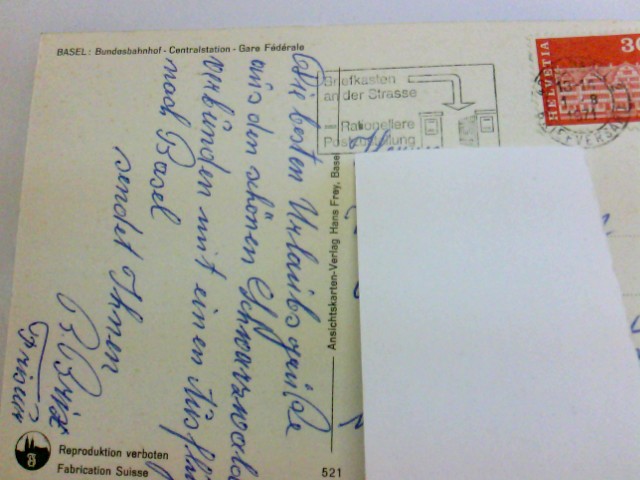 BASEL: Bundesbahnhof - Centralstation - Gare Fédérale
Die besten Urlaubsgrüße
aus den schönen Schwarzwald
verbunden mit einen Ausflu
nach Basel
sendet Ihnen
Friseur
Briefkasten
an der Strasse
Rationellere
Postzustellung
HELVETIA
30
Ansichtskarten-Verlag Hans Frey, Basel
Reproduktion verboten
Fabrication Suisse
521